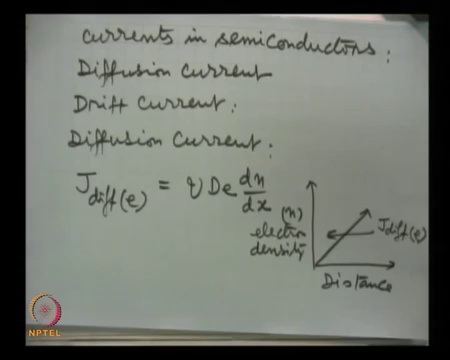 currents in semiconductors:
Diffusion current
Drift current:
Diffusion Current:
J diff(e) = q De dn/dx
(n)
electron
density
J diff(e)
Distance
NPTEL